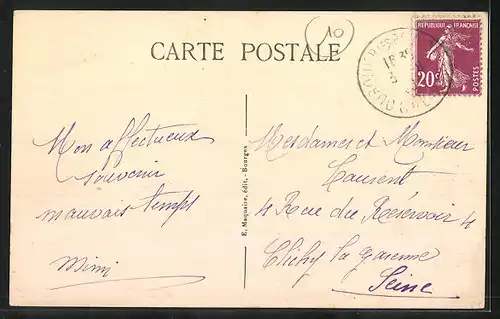 10
CARTE POSTALE
20c
POSTES
Mon affectueux
souvenir
mauvais temps
Mimi
E. Maquaire, édit. - Bourges
Mesdames et Monsieur
Laurent
4 Rue du Réservoir 4
Clichy la Garenne
Seine